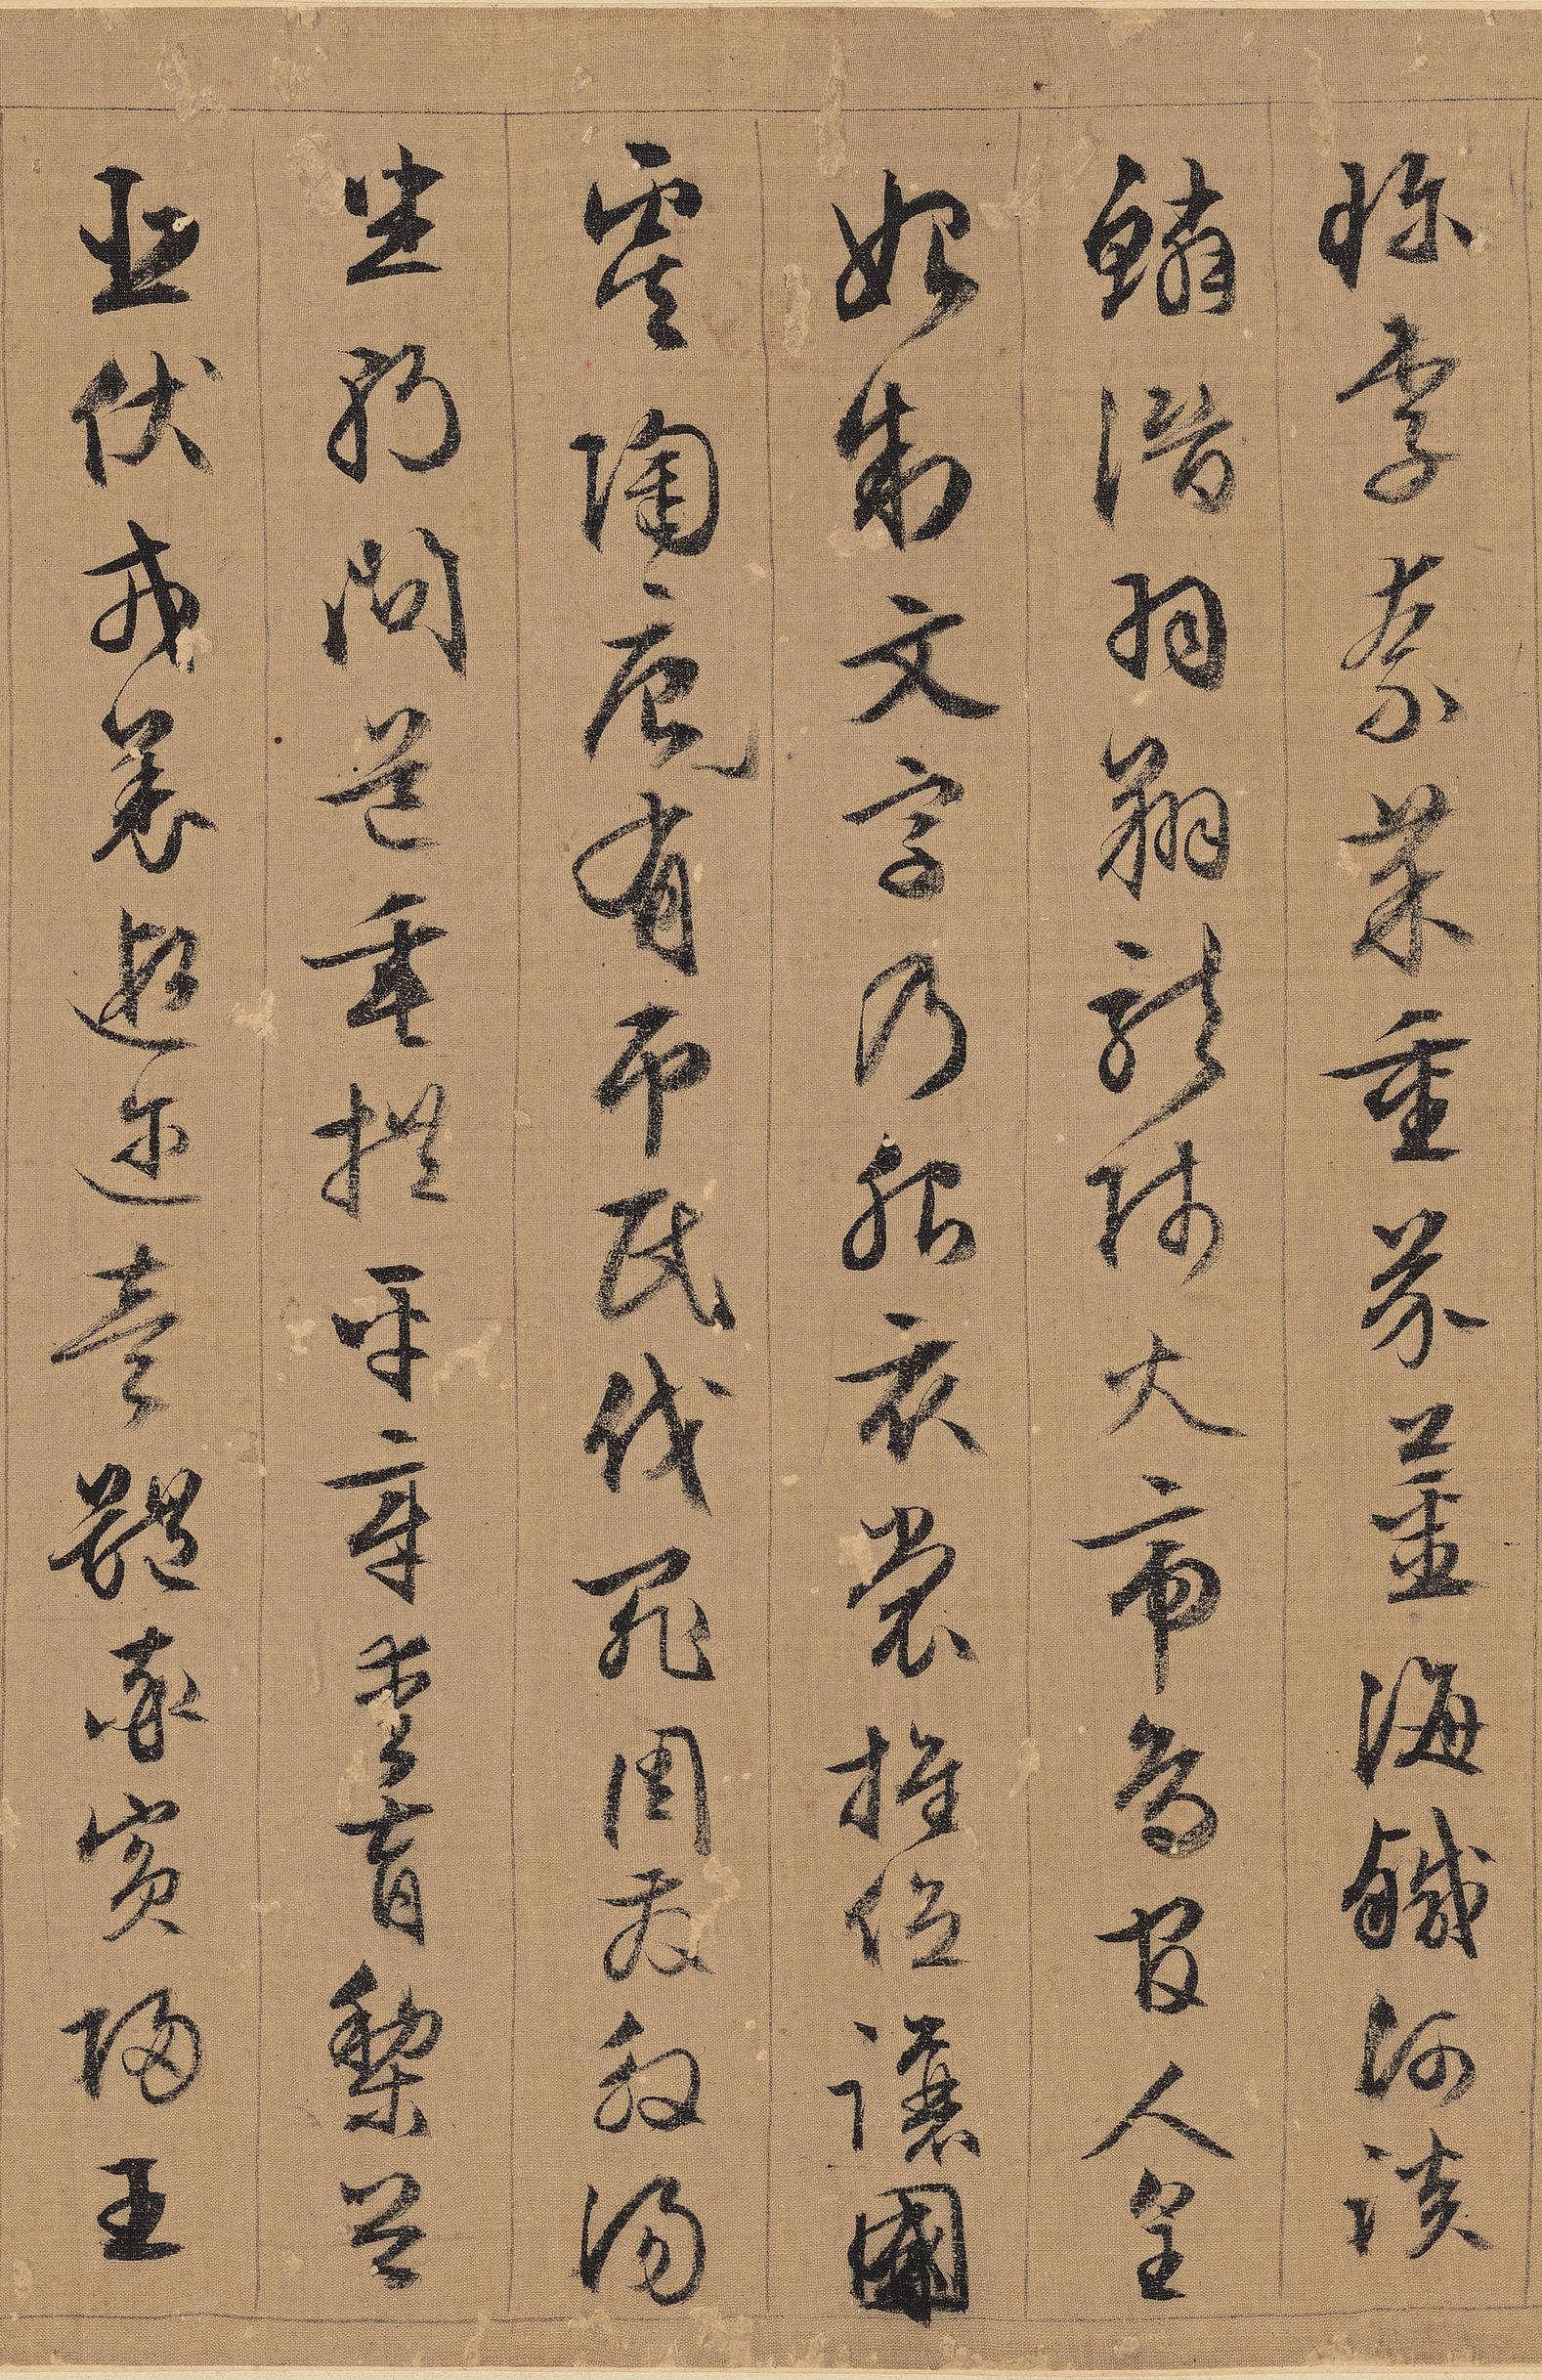 珎李柰菜重芥薑海鹹河淡
鱗潛羽翔龍師火帝鳥官人皇
始制文字乃服衣裳推位讓國
虞陶唐有吊民伐罪周發殷湯
坐朝問道垂拱平章愛育黎首
臣伏戎羌遐迩壹體率賓歸王